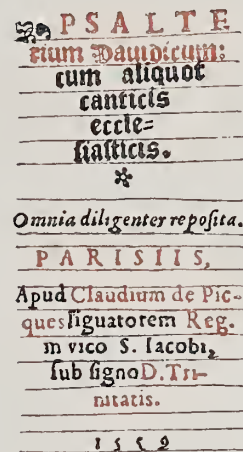 PSALTE
rium Dauidicum:
cum aliquot
canticis
eccle=
siasticis.
Omnia diligenter reposita.
PARISIIS,
Apud Claudium de Pic-
ques siguatorem Reg.
in vico S. Iacobi,
sub signo D. Tri-
nitatis.
1559